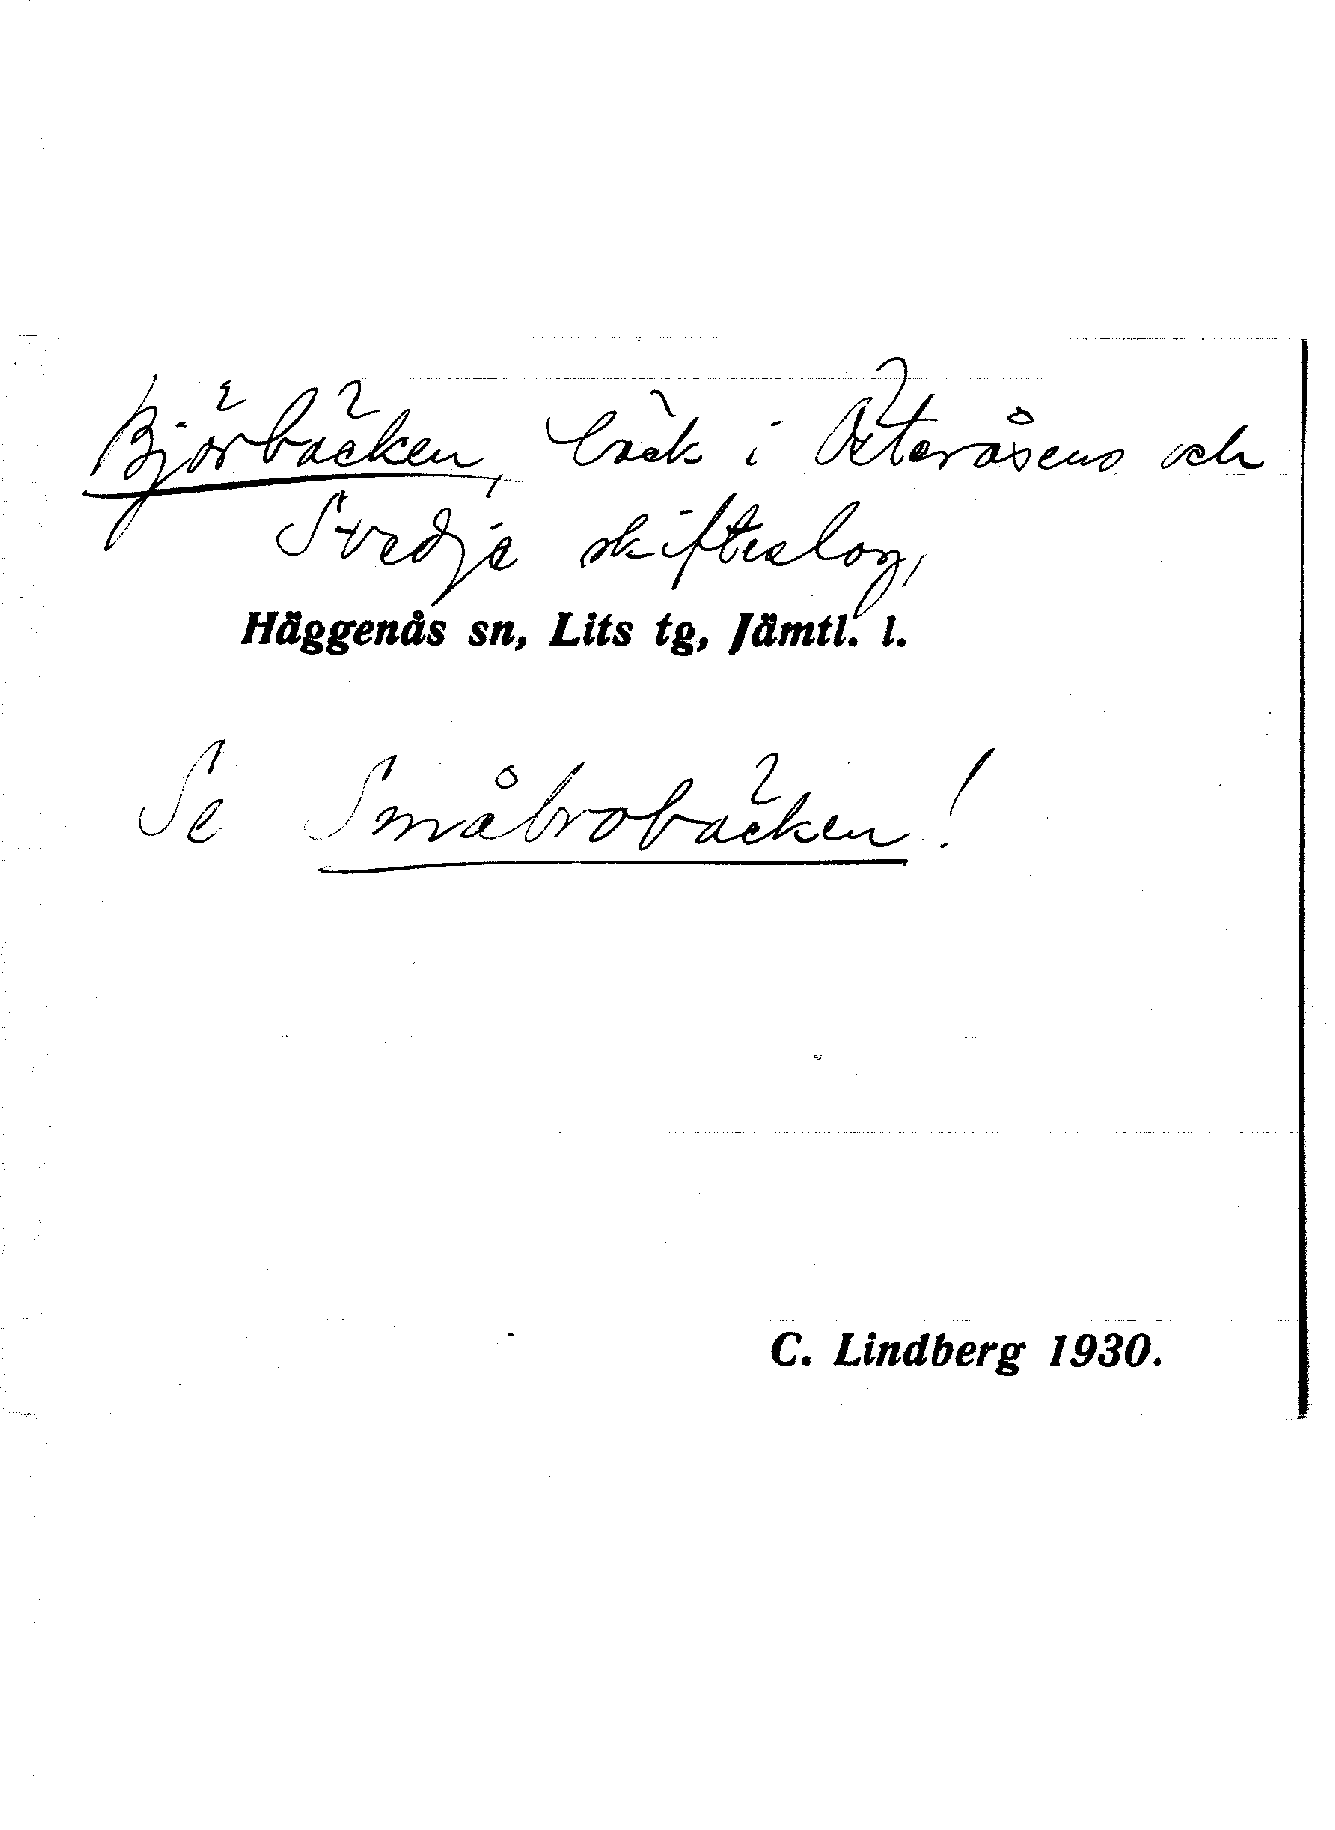 Björbäcken, bäck i Österåsens och
Svedje skifteslag,
Häggenås sn, Lits tg, Jämtl. l.
Se Småbrobäcken!
C. Lindberg 1930.